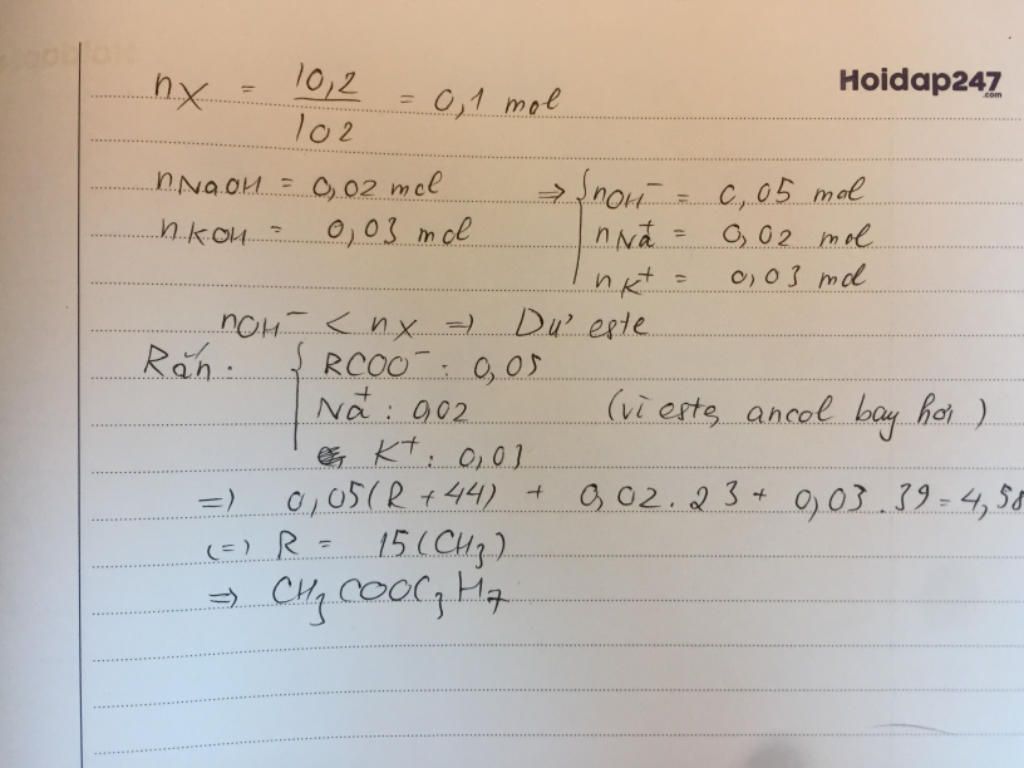 Hoidap247
.com
nX = 10,2/102 = 0,1 mol
nNaOH = 0,02 mol ⇒ { nOH⁻ = 0,05 mol
nKOH = 0,03 mol nNa⁺ = 0,02 mol
nK⁺ = 0,03 mol
nOH⁻ < nX ⇒ Dư este
Rắn. { RCOO⁻ : 0,05
Na⁺ : 0,02 (vì este, ancol bay hơi)
K⁺ : 0,03
⇒ 0,05(R + 44) + 0,02.23 + 0,03.39 = 4,58
(=) R = 15 (CH₃)
⇒ CH₃COOC₃H₇